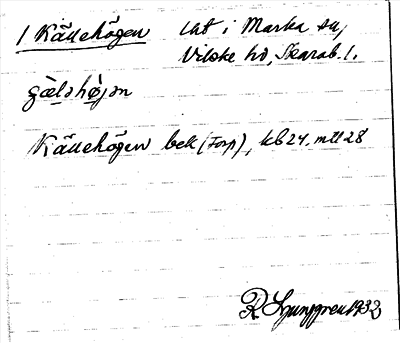 1 Källehögen    Lht i Marka sn,
Vilske hd, Skarab. l.
gælshøjən
Källehögen bek (Torp), kb 24, mtl 28
R Ljunggren 1932